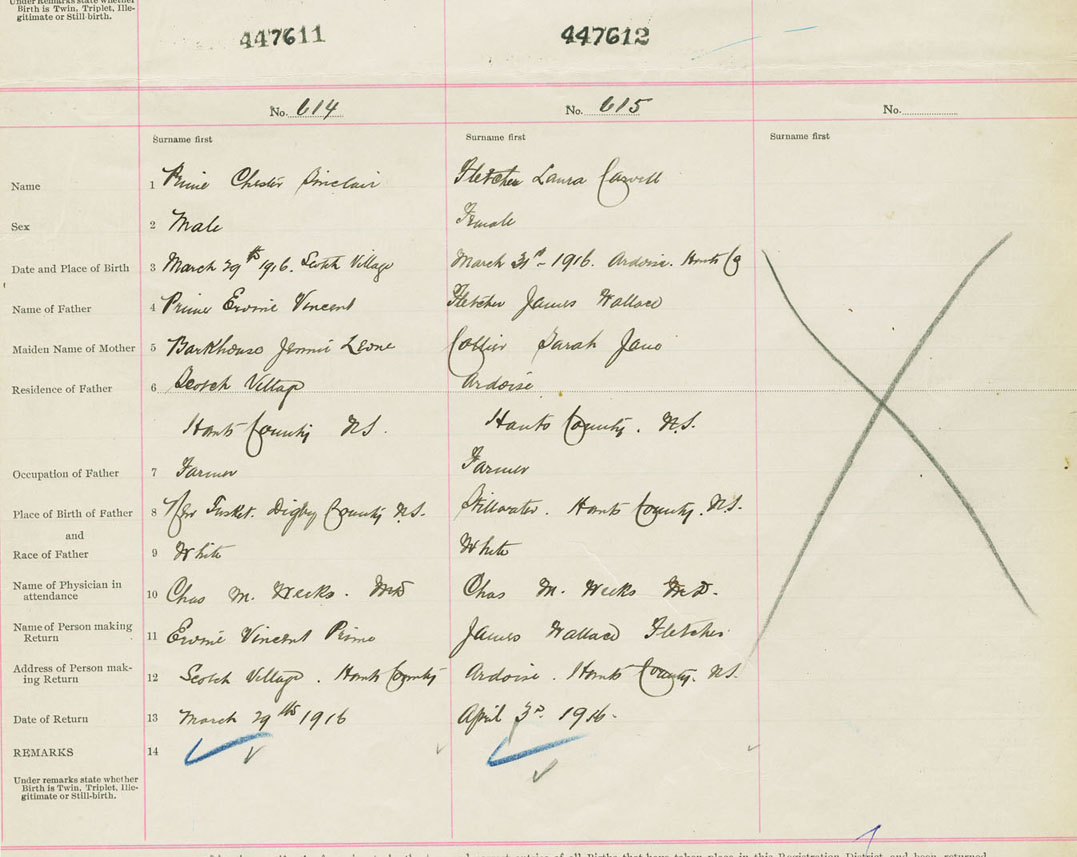 Under Remarks state whether
Birth is Twin, Triplet, Ille-
gitimate or Still-birth.
447611 447612
No. 614 No. 615 No.
Surname first Surname first Surname first
Name 1 Prime Chester Sinclair Fletcher Laura Caswell
Sex 2 Male Female
Date and Place of Birth 3 March 29th 1916. Scotch Village March 31st - 1916. Ardoise. Hants Co
Name of Father 4 Prime Ervine Vincent Fletcher James Wallace
Maiden Name of Mother 5 Barkhouse Jennie Leone Collier Sarah Jane
Residence of Father 6 Scotch Village Ardoise
Hants County N.S. Hants County. N.S.
Occupation of Father 7 Farmer Farmer
Place of Birth of Father 8 New Tusket. Digby County N.S. Stillwater. Hants County. N.S.
and
Race of Father 9 White White
Name of Physician in
attendance 10 Chas M. Weeks. MD Chas M. Weeks M.D.
Name of Person making
Return 11 Ervine Vincent Prime James Wallace Fletcher
Address of Person mak-
ing Return 12 Scotch Village. Hants County Ardoise. Hants County. N.S.
Date of Return 13 March 29th 1916 April 3rd 1916.
REMARKS 14
Under remarks state whether
Birth is Twin, Triplet, Ille-
gitimate or Still-birth.
of all Births that have taken place in this Registration District and been returned